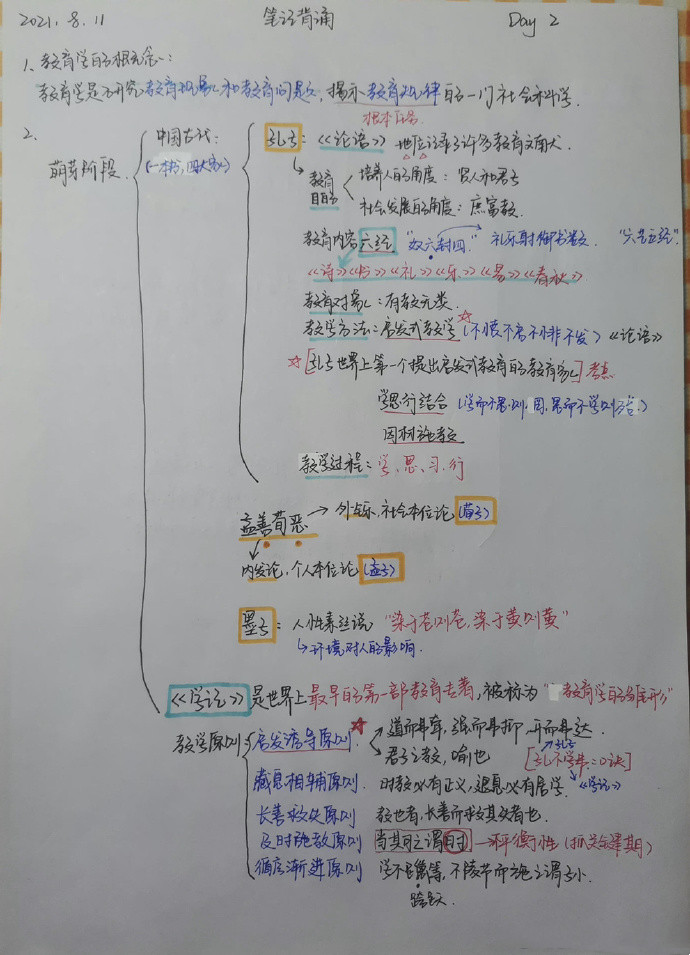 2021.8.11 笔记背诵 Day 2
1、教育学的概念:
教育学是研究教育现象和教育问题,揭示教育规律的一门社会科学。
根本任务
2.
萌芽阶段
中国古代:
(一本书,四大家)
孔子:《论语》地位:记录了许多教育文献
教育目的
培养人的角度:贤人和君子
社会发展的角度:庶富教.
教育内容六经 礼乐射御书数. "六艺五经"
《诗》《书》《礼》《乐》《易》《春秋》
教育对象:有教无类.
教学方法:启发式教学(不愤不启不悱不发)《论语》
[孔子世界上第一个提出启发式教育的教育家]考点
学思行结合(学而不思则罔,思而不学则殆.)
因材施教
教学过程:学、思、习、行
孟善荀恶 → 外铄,社会本位论(荀子)
内发论,个人本位论(孟子)
墨子:人性素丝说 "染于苍则苍,染于黄则黄"
环境对人的影响.
《学记》是世界上最早的第一部教育专著,被称为"教育学的雏形"
教学原则
启发诱导原则 道而弗牵,强而弗抑,开而弗达
君子之教,喻也
孔子
藏息相辅原则. 时教必有正义,退息必有居学. 《学记》
长善救失原则 教也者,长善而救其失者也.
及时施教原则 当其可之谓时 (抓关键期)
循序渐进原则 学不躐等,不陵节而施之谓孙.
跨越.